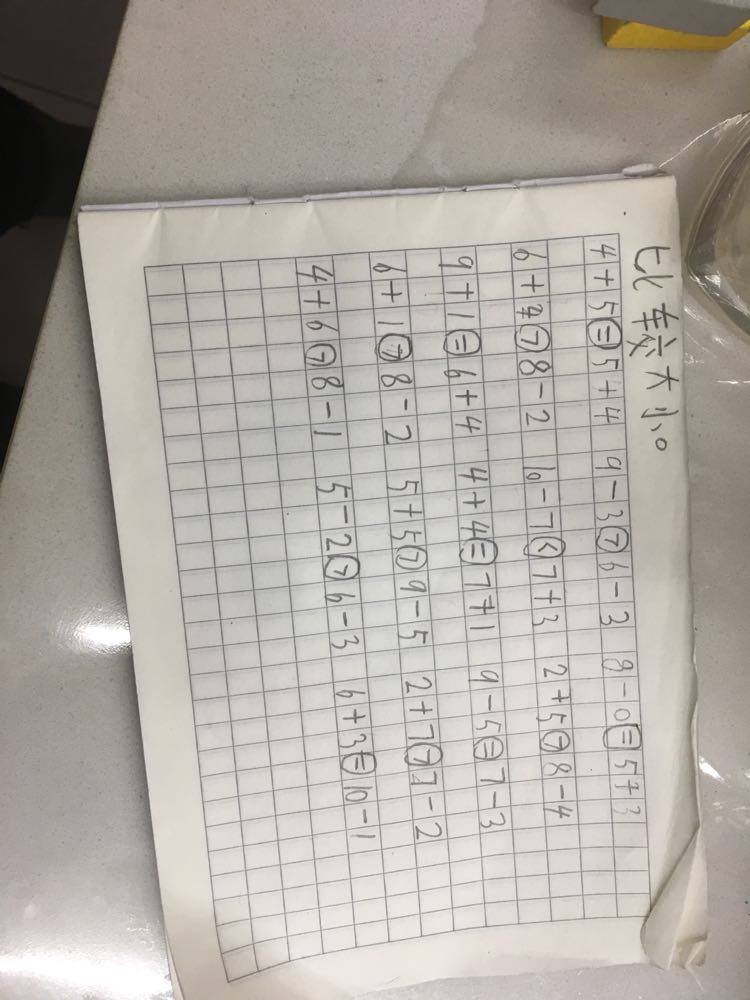 比较大小。
4+5=5+4 9-3>6-3 8-0=5+3
6+4>8-2 10-7<7+3 2+5>8-4
9+1=6+4 4+4=7+1 9-5=7-3
6+1>8-2 5+5>9-5 2+7>7-2
4+6>8-1 5-2>6-3 6+3=10-1